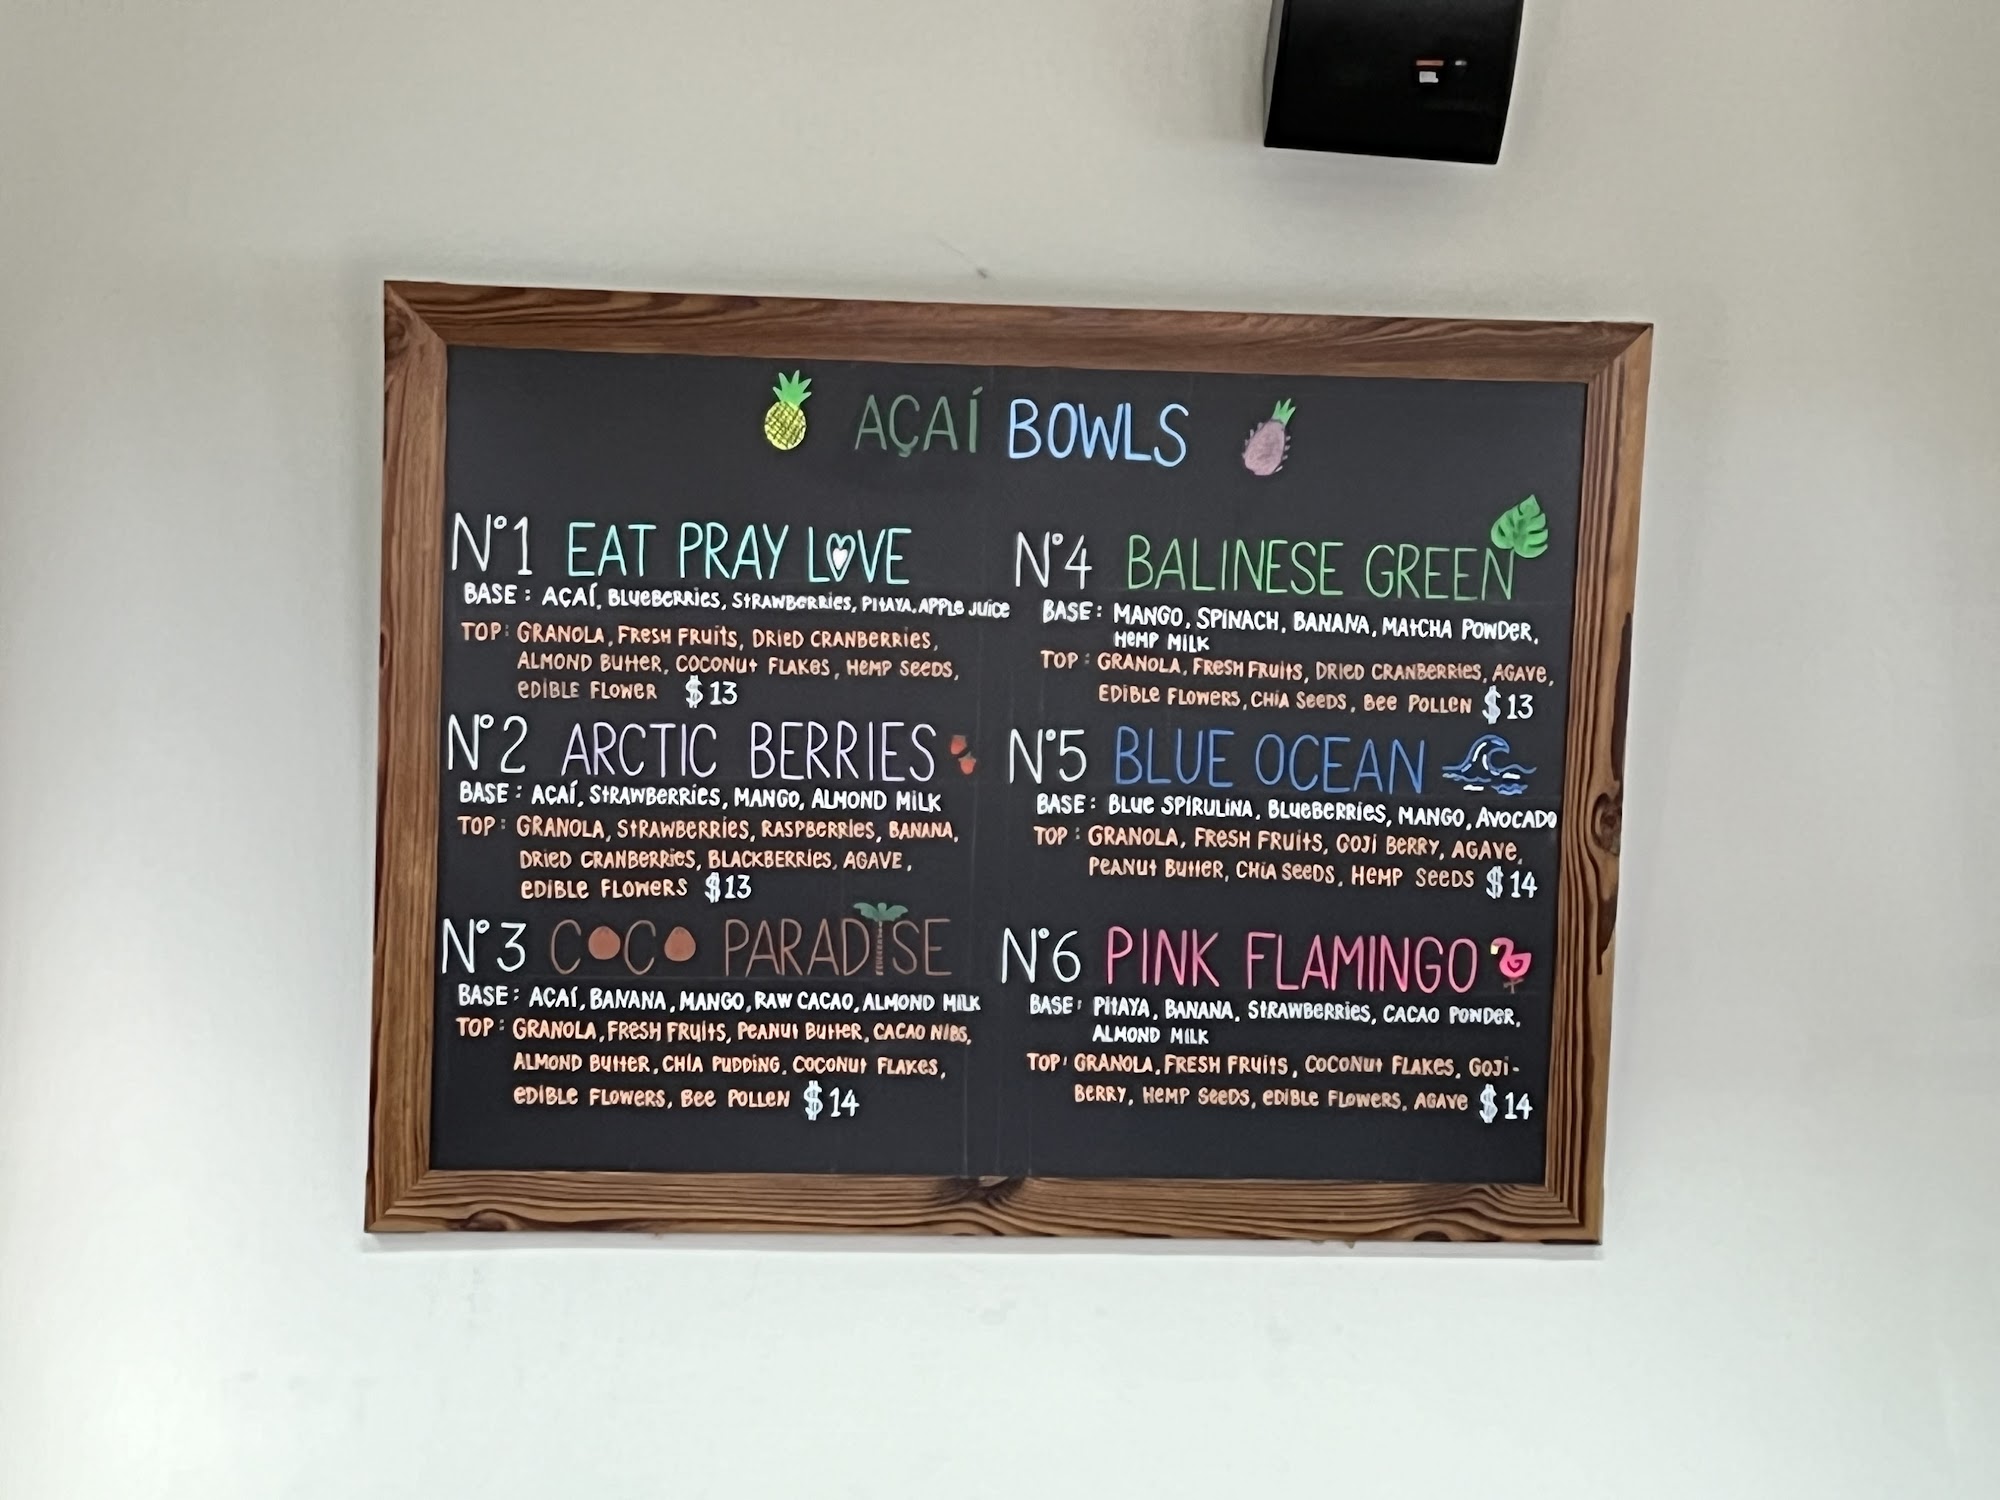 AÇAÍ BOWLS
N°1 EAT PRAY LOVE
BASE: AÇAÍ, BLUEBERRIES, STRAWBERRIES, PITAYA, APPLE JUICE
TOP: GRANOLA, FRESH FRUITS, DRIED CRANBERRIES,
ALMOND BUTTER, COCONUT FLAKES, HEMP SEEDS,
EDIBLE FLOWER $13
N°2 ARCTIC BERRIES
BASE: AÇAÍ, STRAWBERRIES, MANGO, ALMOND MILK
TOP: GRANOLA, STRAWBERRIES, RASPBERRIES, BANANA,
DRIED CRANBERRIES, BLACKBERRIES, AGAVE,
EDIBLE FLOWERS $13
N°3 COCO PARADISE
BASE: AÇAÍ, BANANA, MANGO, RAW CACAO, ALMOND MILK
TOP: GRANOLA, FRESH FRUITS, PEANUT BUTTER, CACAO NIBS,
ALMOND BUTTER, CHIA PUDDING, COCONUT FLAKES,
EDIBLE FLOWERS, BEE POLLEN $14
N°4 BALINESE GREEN
BASE: MANGO, SPINACH, BANANA, MATCHA POWDER,
HEMP MILK
TOP: GRANOLA, FRESH FRUITS, DRIED CRANBERRIES, AGAVE,
EDIBLE FLOWERS, CHIA SEEDS, BEE POLLEN $13
N°5 BLUE OCEAN
BASE: BLUE SPIRULINA, BLUEBERRIES, MANGO, AVOCADO
TOP: GRANOLA, FRESH FRUITS, GOJI BERRY, AGAVE,
PEANUT BUTTER, CHIA SEEDS, HEMP SEEDS $14
N°6 PINK FLAMINGO
BASE: PITAYA, BANANA, STRAWBERRIES, CACAO POWDER,
ALMOND MILK
TOP: GRANOLA, FRESH FRUITS, COCONUT FLAKES, GOJI-
BERRY, HEMP SEEDS, EDIBLE FLOWERS, AGAVE $14